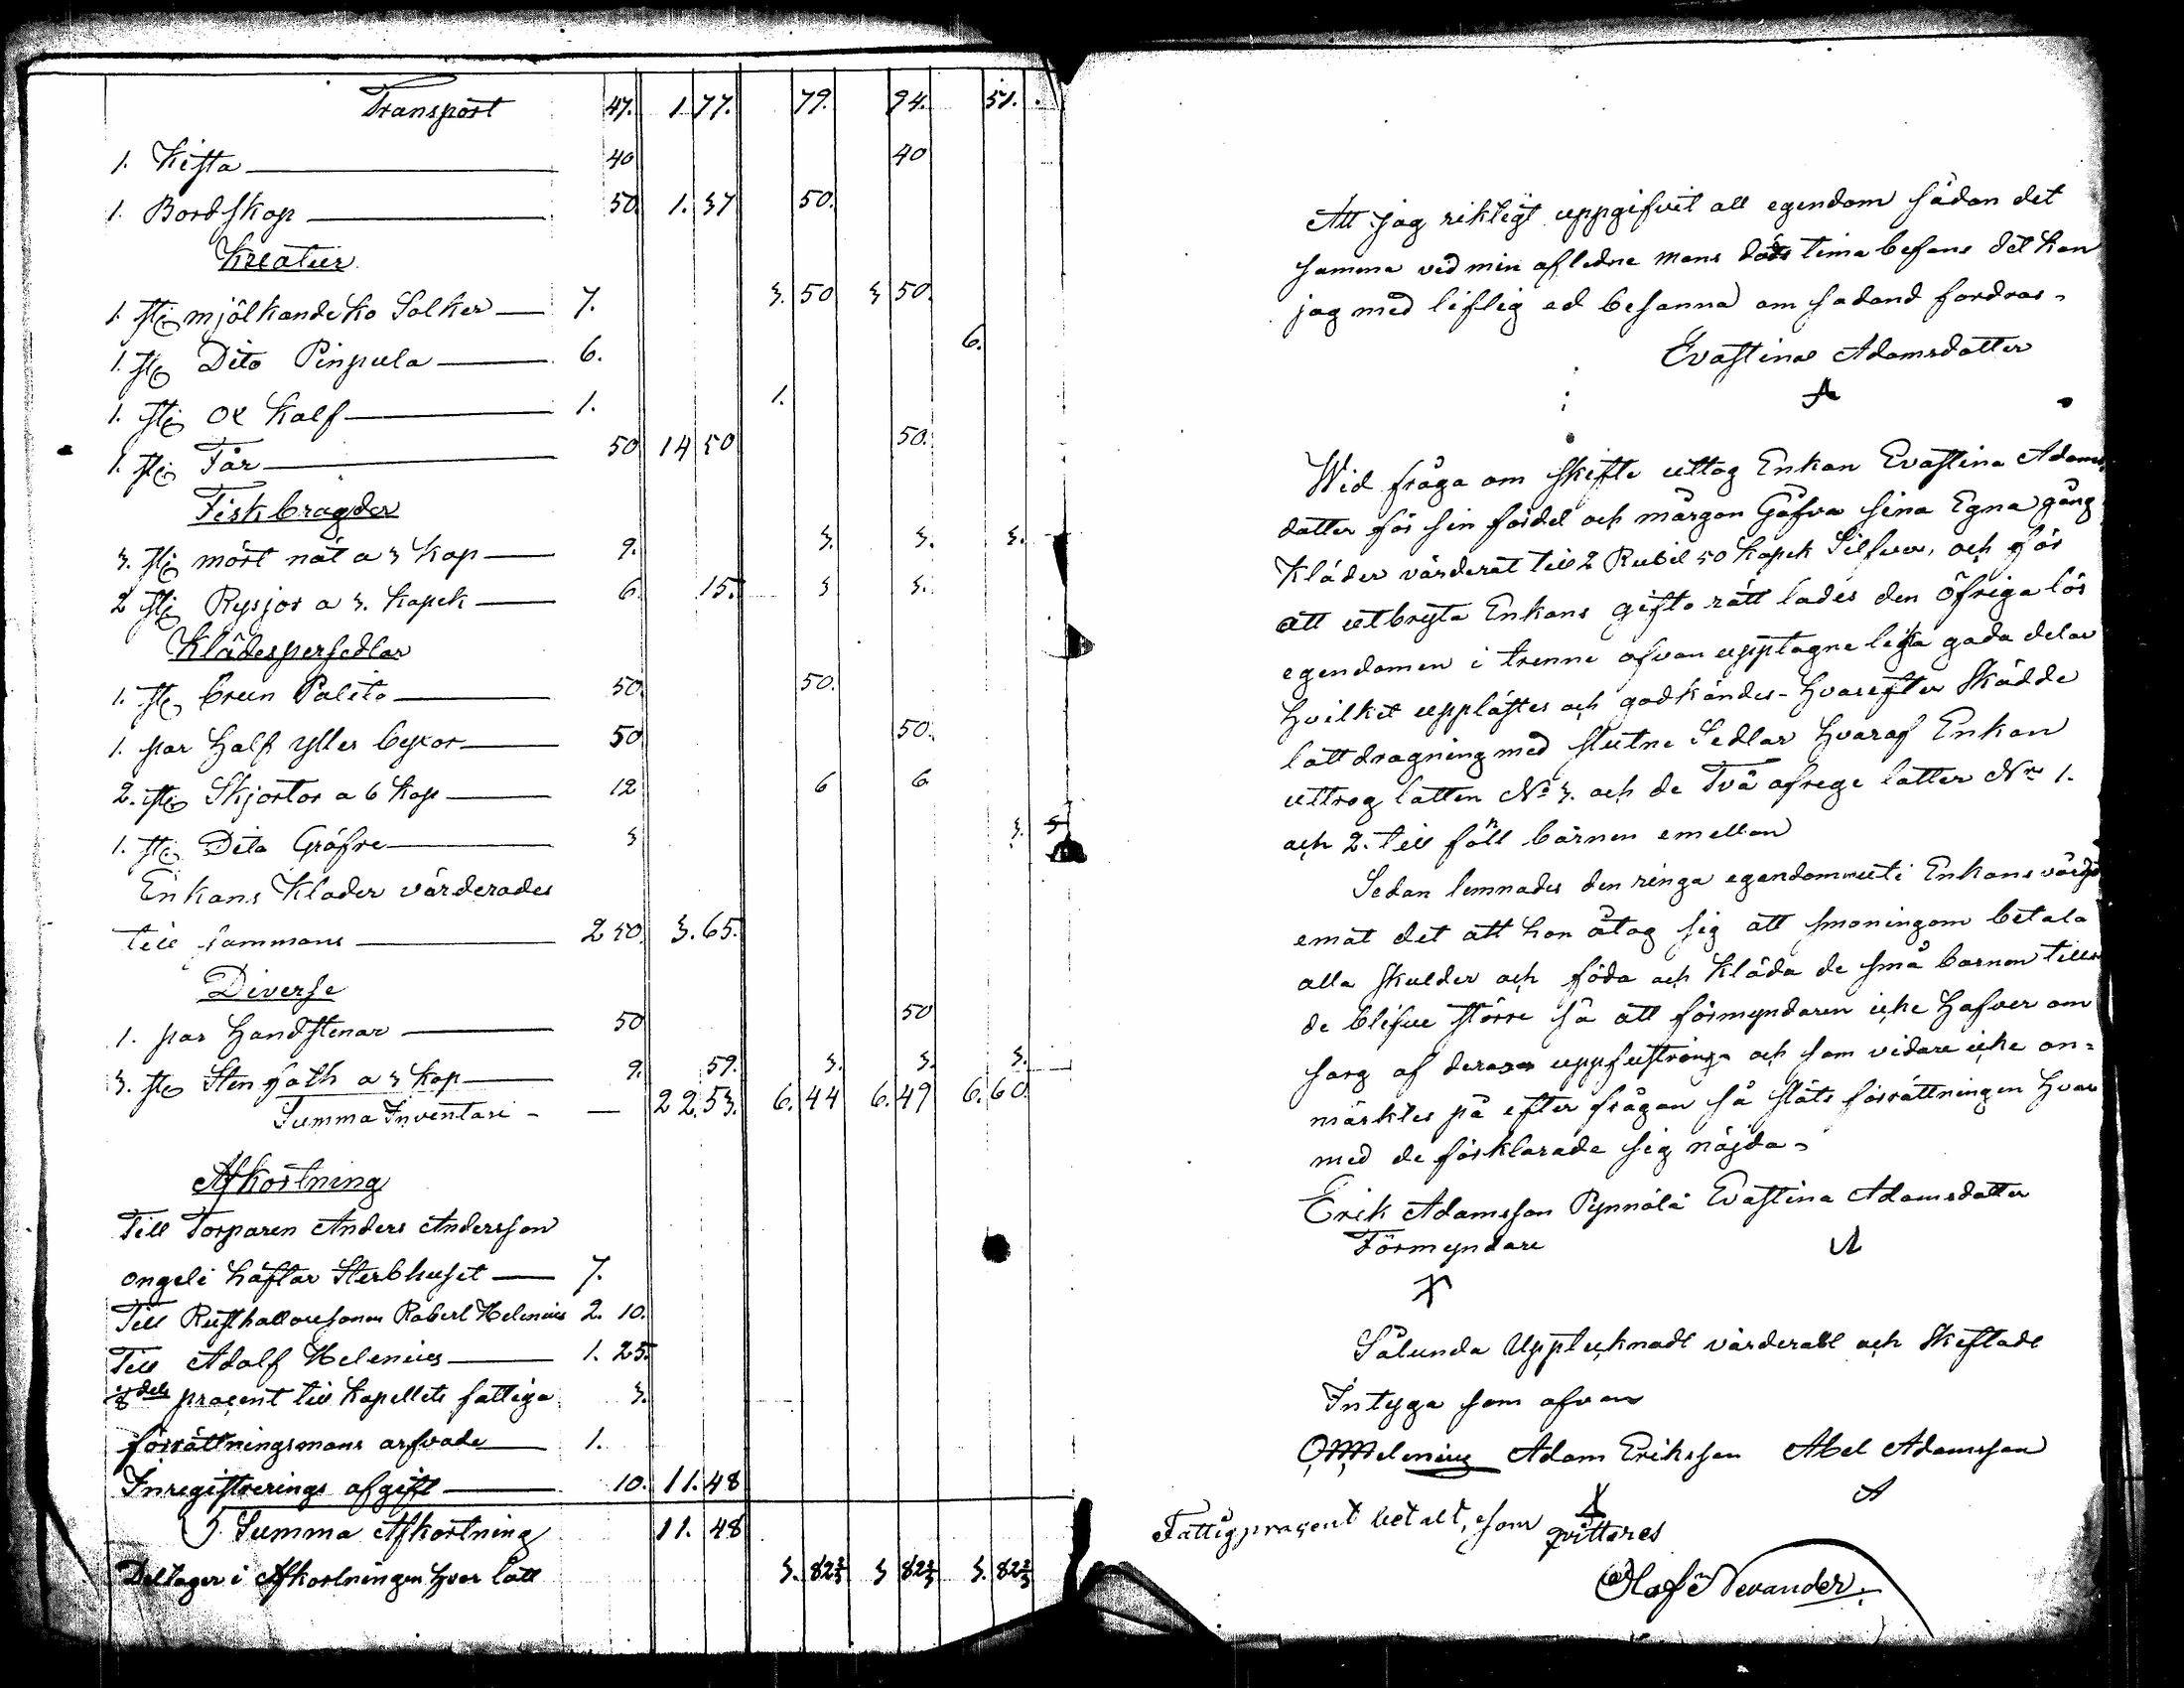 Transport 47. 1 77. 79. 94. 51.
1. Kista 40 40
1. Bordskop 50. 1. 37 50.
Kreatur
1. st: mjölkande ko Solker 7. 3. 50 3 50.
1. st: Dito Pinpula 6. 6.
1. st: ox kalf 1. 1.
1. st: Får 50 14 50 50.
Fiskbragder
3. st: mört nät a 3 kop 9. 3. 3. 3.
2 st: Rysjor a 3. kopek 6. 15. 3 3.
Klädespersedlar
1. st: brun Palito 50. 50.
1. par half ylles byxor 50 50.
2. st: Skjortor a 6 kop 12 6 6
1. st: Dito Gröfre 3 3.
Enkans Klader värderades
till sammans 2 50. 3. 65.
Diverse
1. par Handstenar 50 50
3. st: Sten fath a 3 kop 9. 59. 3. 3. 3.
Summa Inventari - 22. 53. 6. 44 6. 49 6. 60.
Afkortning
Till Torparen Anders Andersson
ongeli häftar Sterbhuset 7.
Till Rusthallaresonen Robert Helenius 2. 10.
Till Adolf Helenius 1. 25.
8 dels procent till kapellets fattiga 3.
förrättningsmans arfvode 1.
Inregistrerings afgift 10. 11. 48
Summa Afkortning 11. 48
Deltager i Afkortningen hvar lått 3. 82 2/3 3 82 2/3 3. 82 2/3
Att jag riktigt uppgifvit all egendom sådan det
samma vid min aflidne mans döds tima befans det kan
jag med liflig ed besanna om sadand fordras-
Evastina Adamsdotter
Wid fråga om skifte uttog Enkan Evastina Adams
dotter för sin fördel och mårgon Gåfva sina Egna gång
Kläder värderat till 2 Rubil 50 kopek Silfver, och för
att utbryta Enkans gifto rätt lades den öfriga lös
egendomen i trenne ofvan upptagne lika goda delar
hvilket upplästes och godkändes- hvarefter skådde
låttdragning med slutne Sedlar hvaraf Enkan
uttrog lotten No 3. och de Två ofrege lotter No 1.
och 2. till föll bärnen emellan
Sedan lemnades den ringa egendommen i Enkans vård
emot det att hon åtog sig att smoningom betala
alla skulder och föda och kläda de små barnen tills
de blifve större så att förmyndaren icke hafver om
sorg af deras uppfustring och som vidare icke an=
märktes på efter frågan så slöts förrättningen hvar
med de förklarade sig nöjda-
Erik Adamsson Pynnälä Evastina Adamsdotter
Förmyndare
Sålunda Upptecknadt värderadt och Skiftadt
Intyga som ofvan
Helenius Adam Eriksson Abel Adamsson
Fattigprocent betalt, som qvitteres
Olof Nevander.